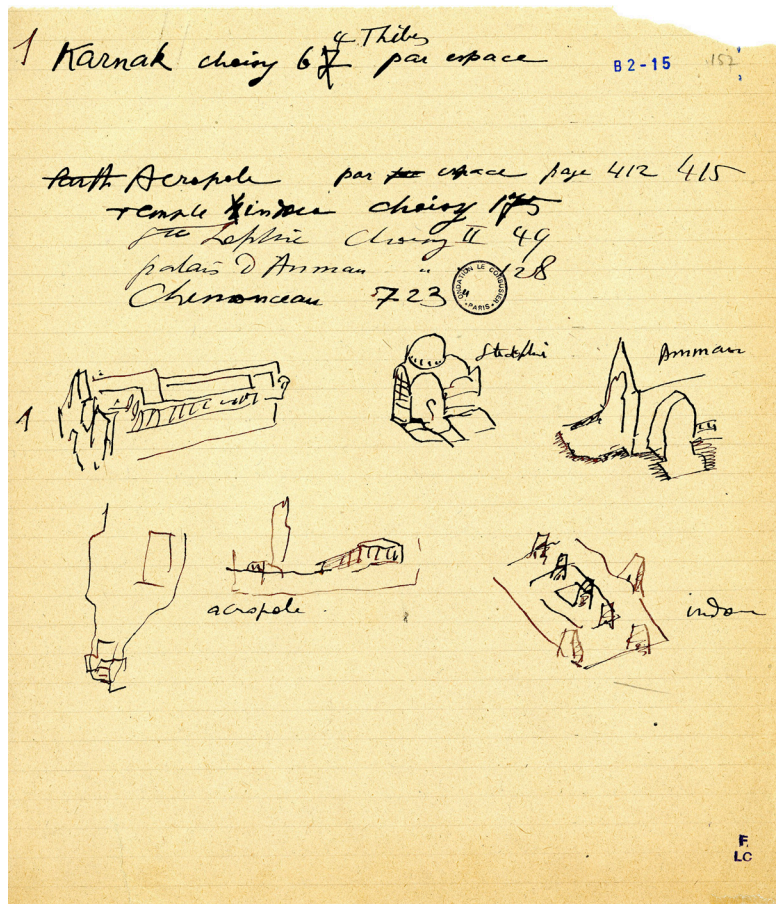 & Thèbes
1 Karnak choisy 67 par espace
B2-15
152
Acropole par espace page 412 415
temple hindou choisy 175
Ste Sophie Choisy II 49
palais d'Amman " " 128
Chenonceau 723
FONDATION LE CORBUSIER
PARIS
Ste Sophie
Amman
1
acropole
indou
F.
LC